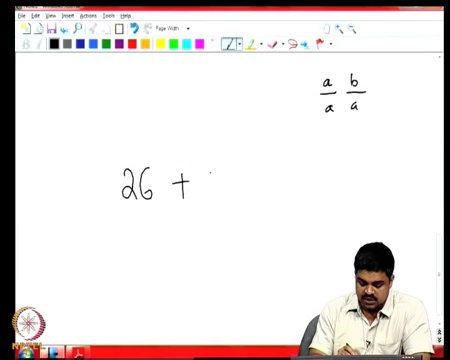 File Edit View Insert Actions Tools Help
Page Width
a b
a a
26 +
NPTEL